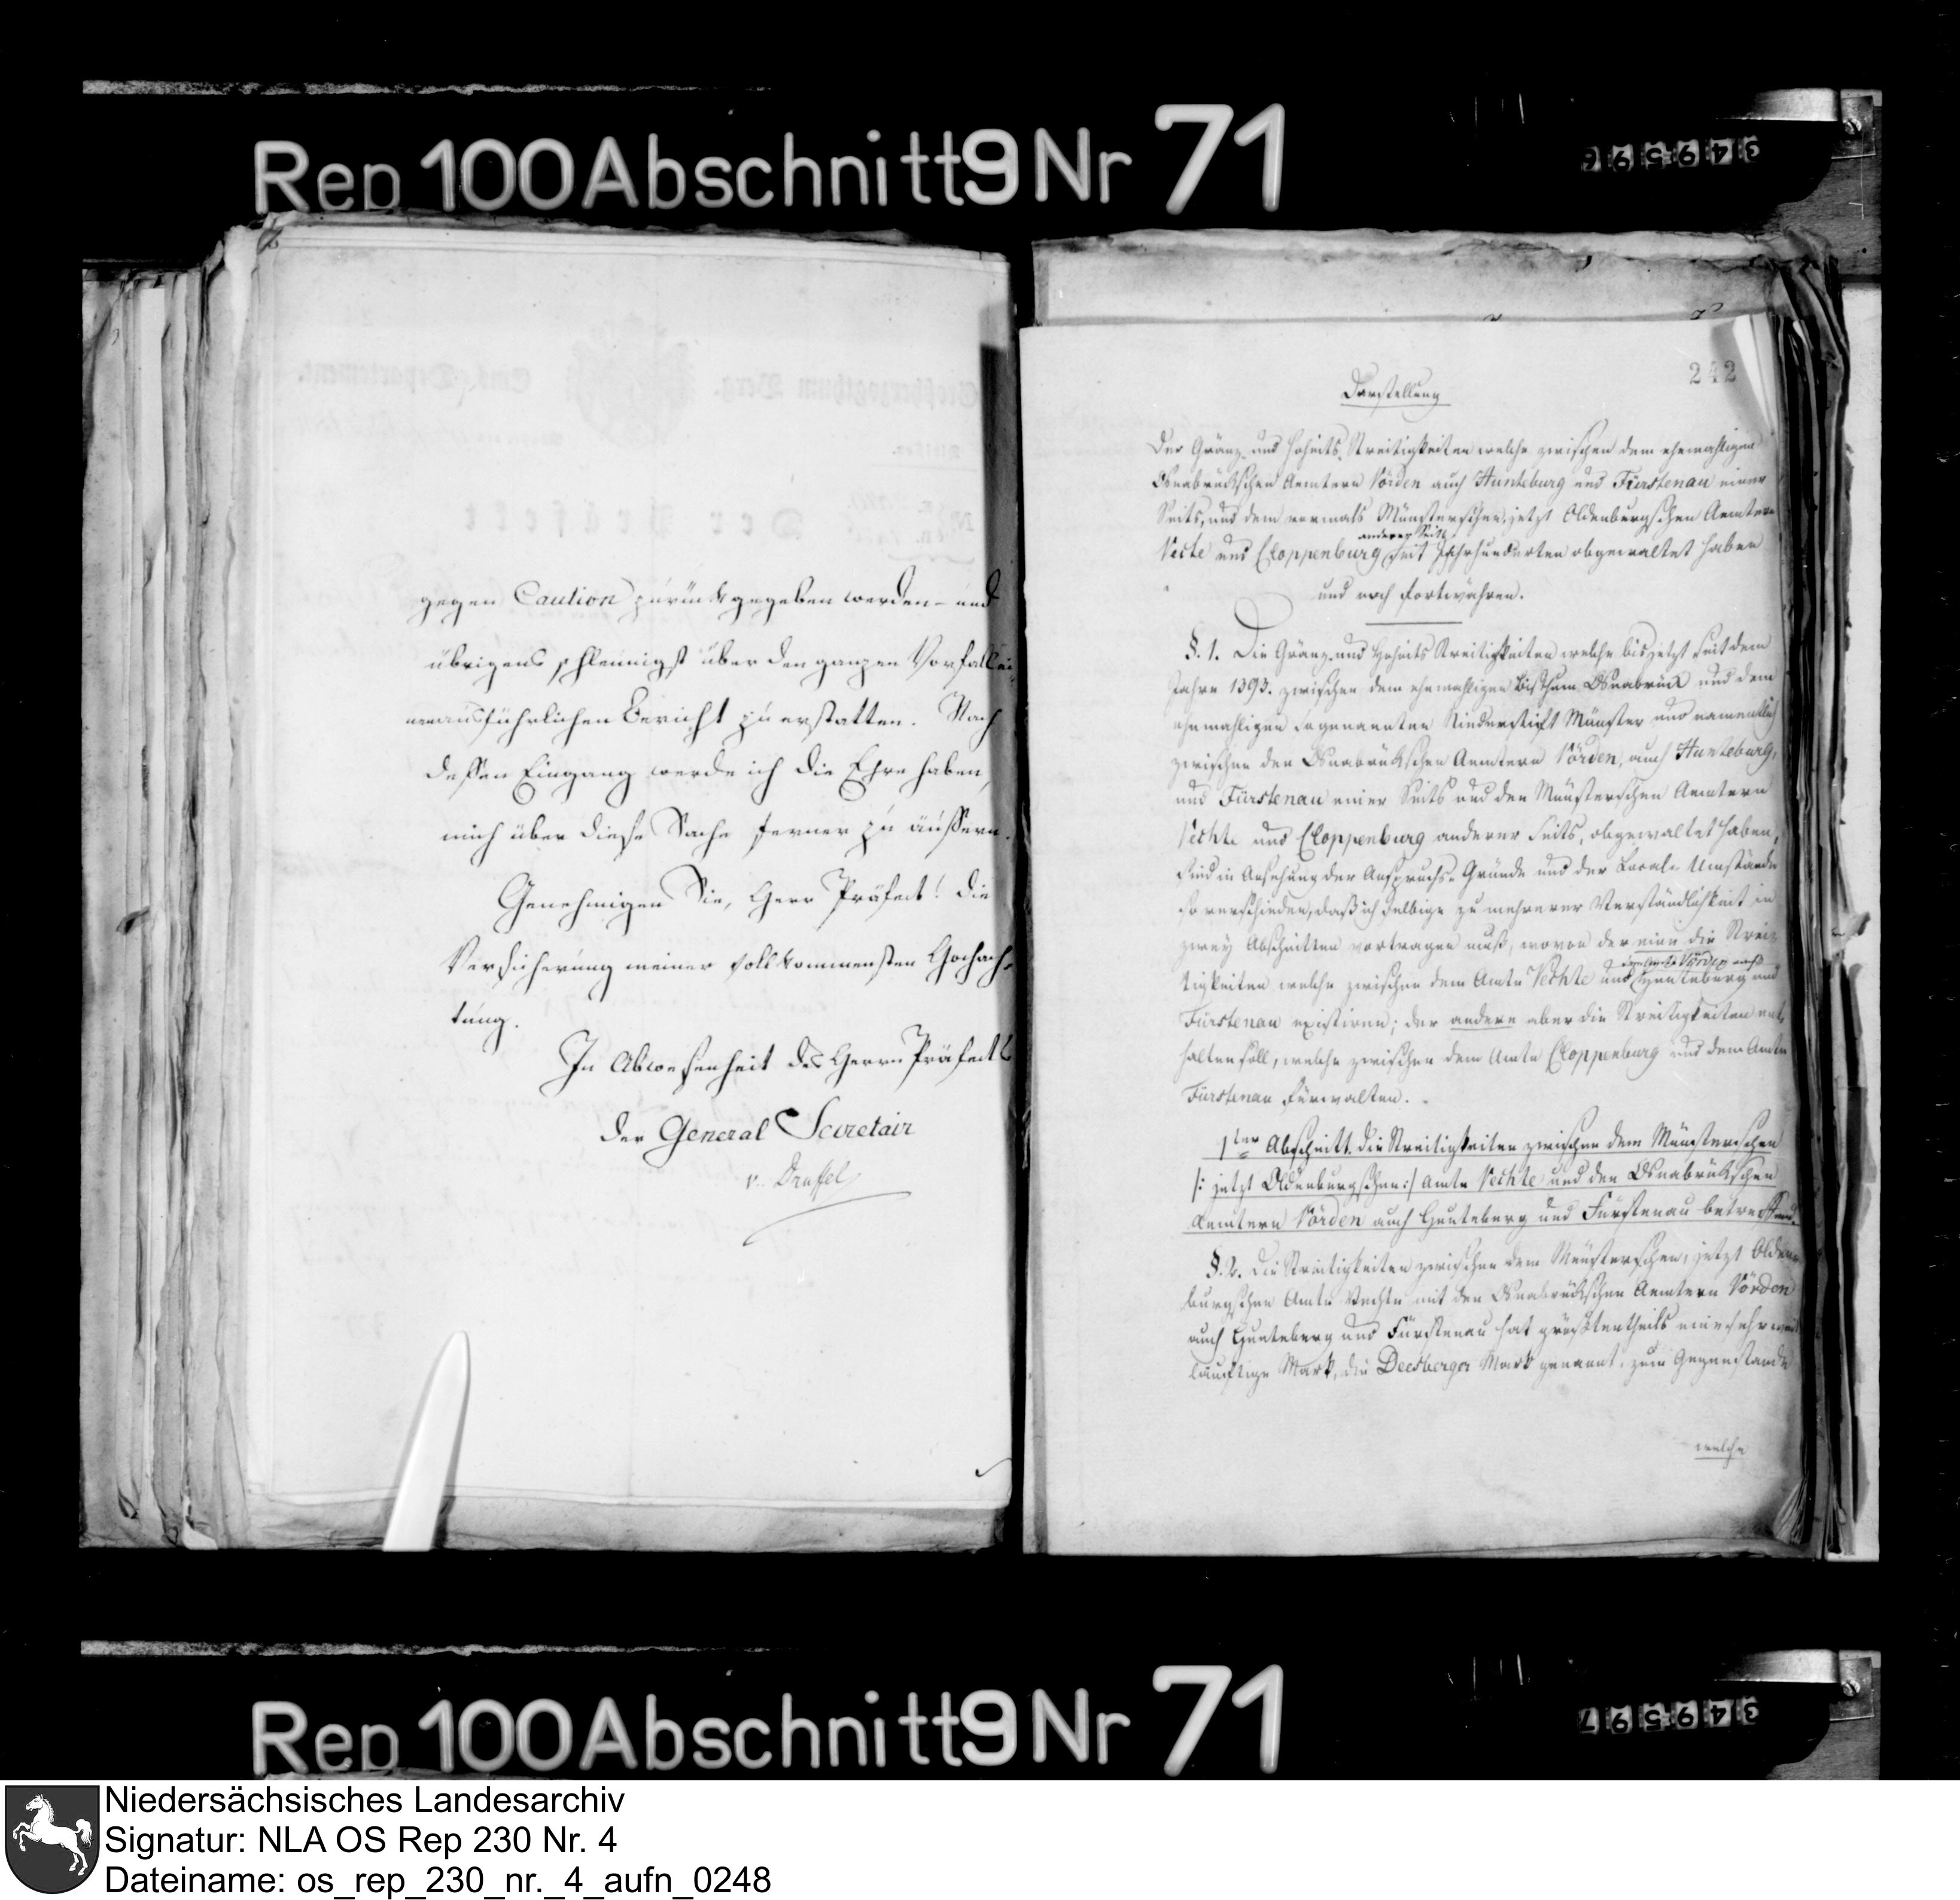 Rep 100 Abschnitt 9 Nr 71
349596
gegen Caution zurückgegeben werden – und
übrigens schleunigst über den ganzen Vorfall ei-
nen ausführlichen Bericht zu erstatten. Nach
dessen Eingang werde ich die Ehre haben,
mich über diese Sache ferner zu äussern.
Genehmigen Sie, Herr Präfect! die
Versicherung meiner vollkommensten Hochach-
tung.
In Abwesenheit des Herrn Präfects
der General Secretair
v. Druffel
242
Darstellung
Der Gränz- und Hoheits-Streitigkeiten welche zwischen dem ehemahligen
Osnabrückschen Aemtern Vörden auch Hunteburg und Fürstenau einer
Seits, und dem vormals Münsterschen, jetzt Oldenburgschen Aemtern
anderer Seits
Vechte und Cloppenburg seit Jahrhunderten obgewaltet haben
und noch fortwähren.
§. 1. Die Gränz- und Hoheits Streitigkeiten welche bis jetzt seit dem
Jahre 1393. zwischen dem ehemahligen Bisthum Osnabrück und dem
ehemahligen sogenannten Niederstift Münster und namentlich
zwischen den Osnabrückschen Aemtern Vörden, auch Hunteburg,
und Fürstenau einer Seits und den Münsterschen Aemtern
Vechte und Cloppenburg anderer Seits, obgewaltet haben,
sind in Ansehung der Anspruchs-Gründe und der Local-Umstände
so verschieden, daß ich selbige zu mehrerer Verständlichkeit in
zwey Abschnitten vortragen muß, wovon der eine die Strei-
dem Amte Vörden auch
tigkeiten welche zwischen dem Amte Vechte und Hunteburg und
Fürstenau existiren; der andere aber die Streitigkeiten ent-
halten soll, welche zwischen dem Amte Cloppenburg und dem Amte
Fürstenau fürwalten.
1ter Abschnitt. die Streitigkeiten zwischen dem Münsterschen
/: jetzt Oldenburgschen :/ Amte Vechte und den Osnabrückschen
Aemtern Vörden auch Hunteburg und Fürstenau betreffend.
§. 2. Die Streitigkeiten zwischen dem Münsterschen, jetzt Olden-
burgschen Amte Vechte mit den Osnabrückschen Aemtern Vörden
auch Hunteburg und Fürstenau hat größtentheils eine sehr weit
läuftige Mark, die Deesberger Mark genannt, zum Gegenstande
welche
Rep 100 Abschnitt 9 Nr 71
349597
Niedersächsisches Landesarchiv
Signatur: NLA OS Rep 230 Nr. 4
Dateiname: os_rep_230_nr._4_aufn_0248